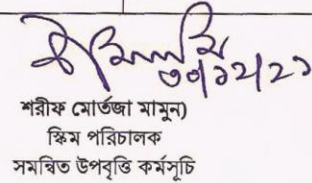 ৩০/১২/২১
শরীফ মোর্তজা মামুন)
স্কিম পরিচালক
সমন্বিত উপবৃত্তি কর্মসূচি